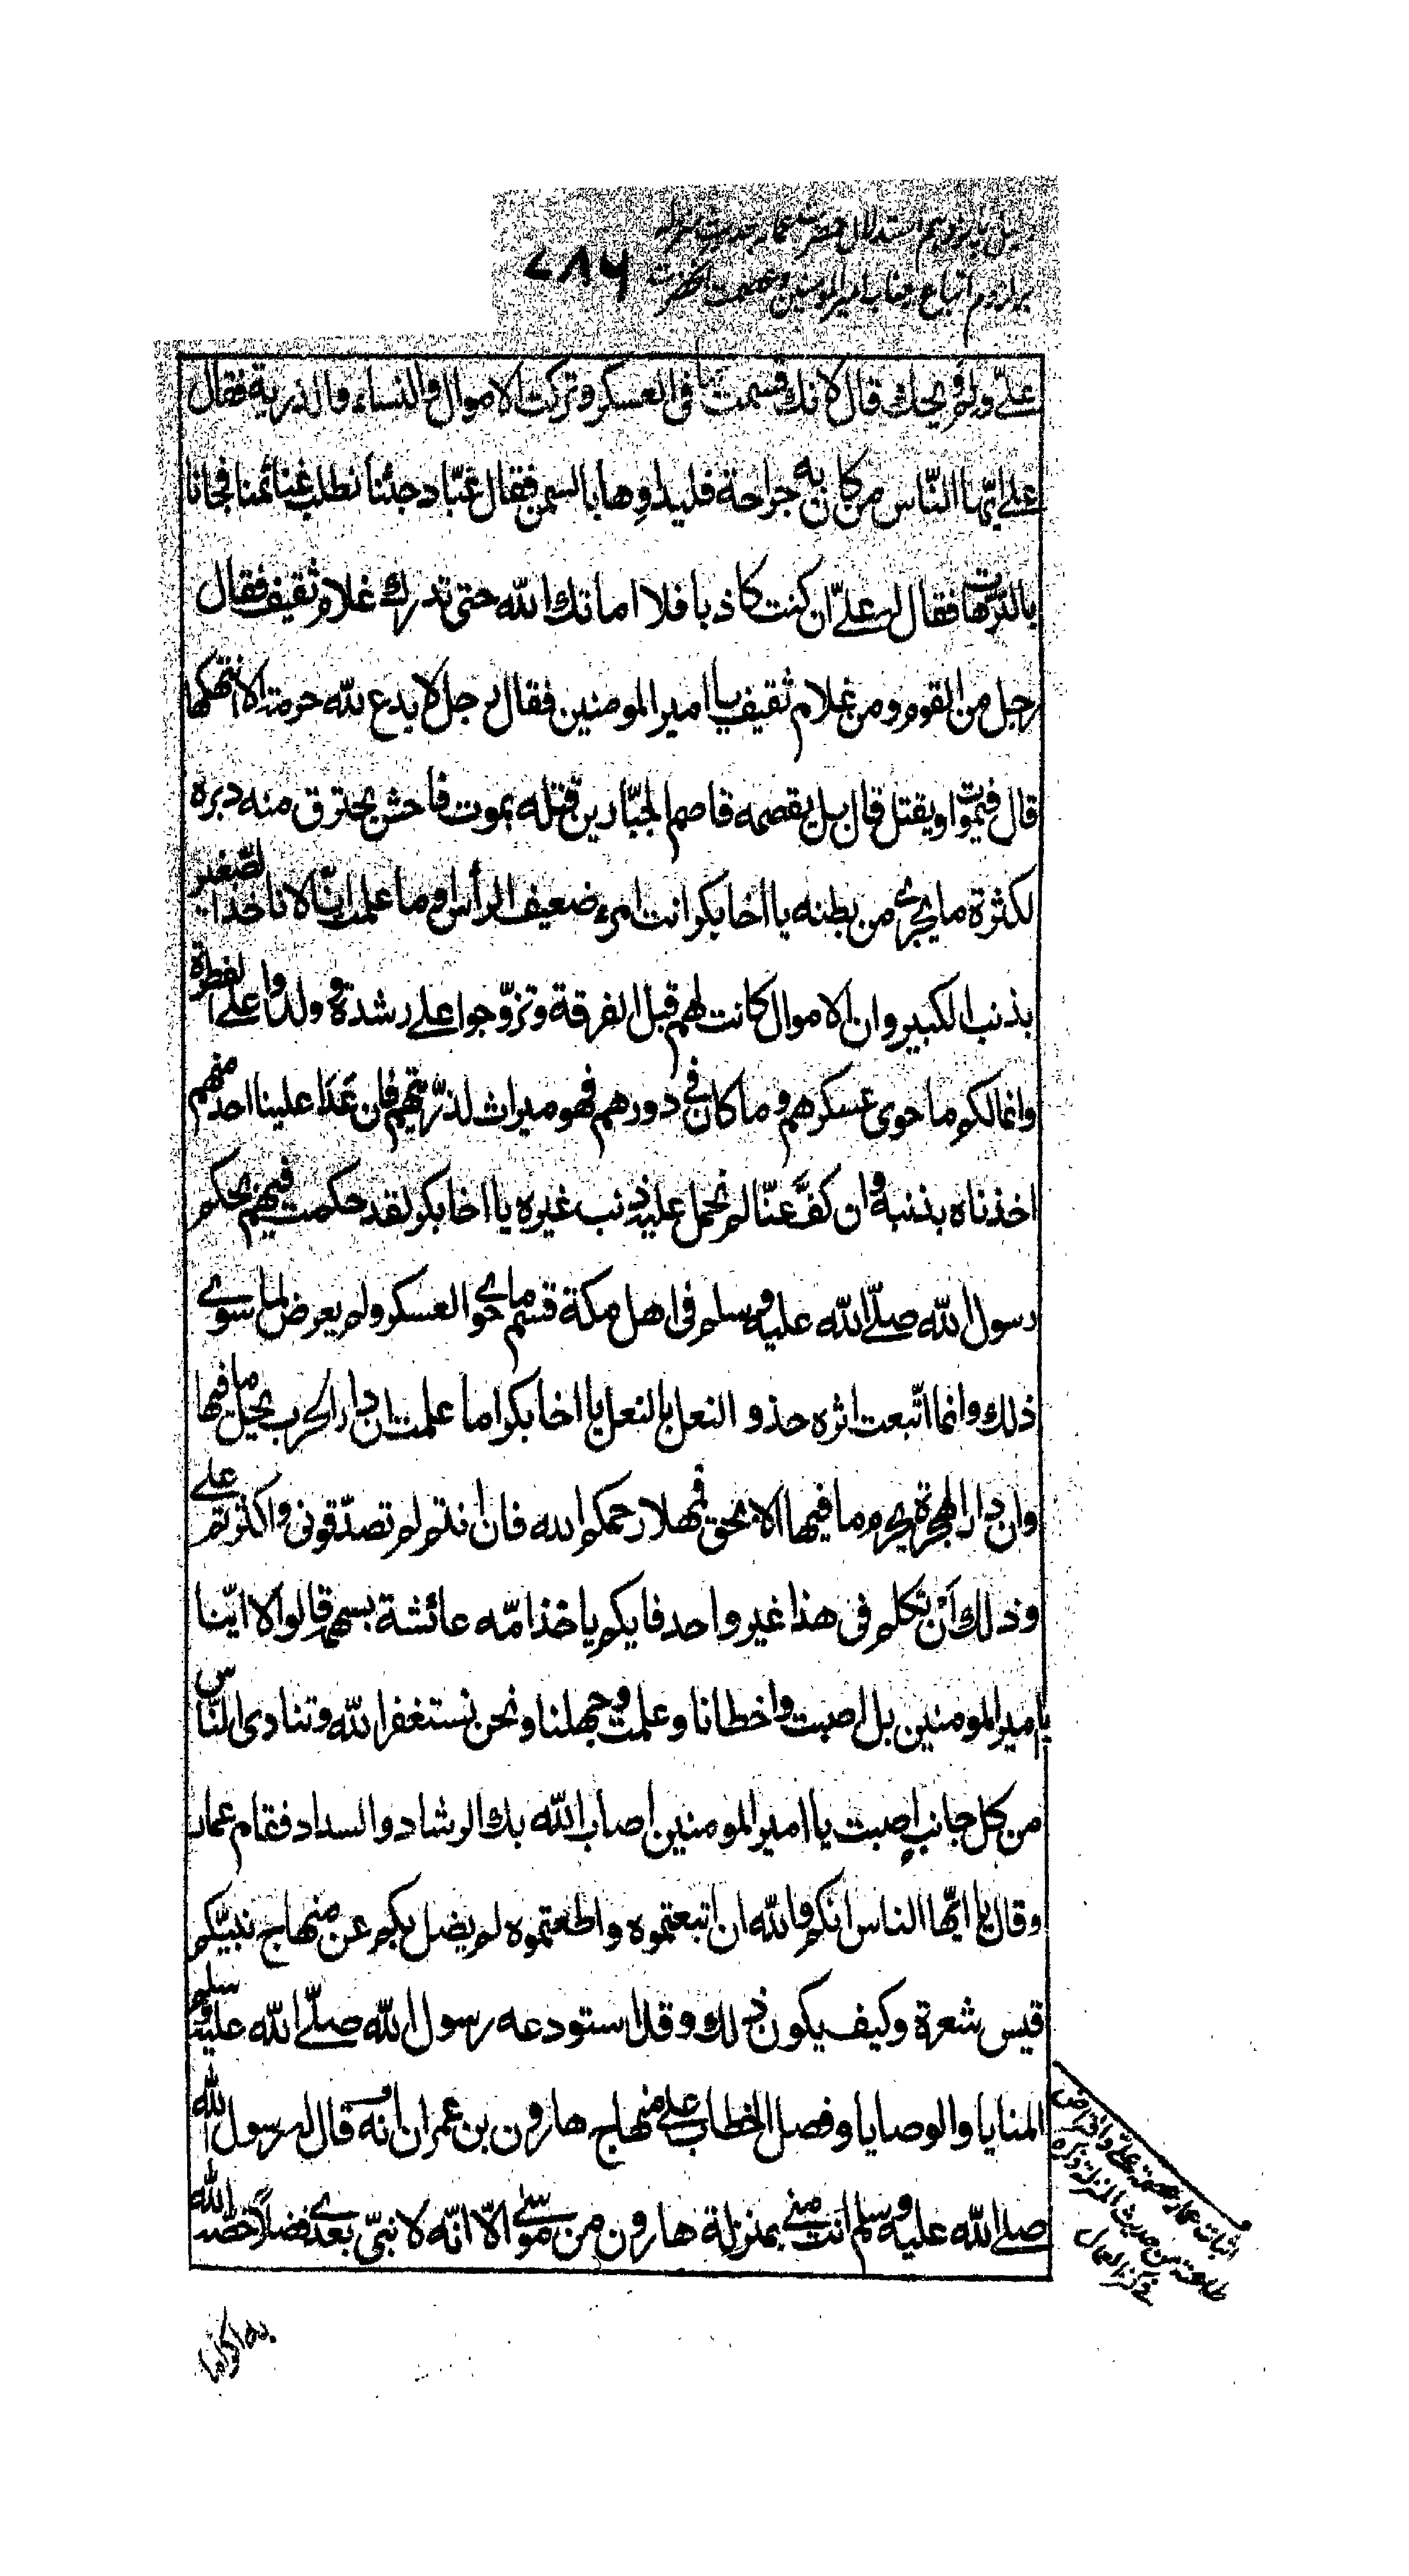 دليل يازدهم استدلال حضرت عمار بحديث منزلة
بر لزوم اتباع جناب امير المومنين
۷۸۶
علي ولم ويحك قال لانك قسمت ما في العسكر وتركت الاموال والنساء والذرية فقال
علي ايها الناس من كان به جراحة فليداوها بالسمن فقال عبّاد جئنا نطلب غنائمنا فجاءنا
بالترهات فقال له علي ان كنت كاذبا فلا اماتك الله حتى تدرك غلام ثقيف فقال
رجل من القوم ومن غلام ثقيف يا امير المومنين فقال رجل لا يدع لله حرمة الا انتهكها
قال فيموت او يقتل قال بل يقصمه قاصم الجبّارين قتله بموت فاحش يحترق منه دبره
لكثرة ما يجري من بطنه يا اخا بكر انت امرء ضعيف الرأي او ما علمت انّا لا ناخذ الصغير
بذنب الكبير وان الاموال كانت لهم قبل الفرقة وتزوّجوا على رشدة وولدوا على الفطرة
وانما لكم ما حوى عسكرهم وما كان في دورهم فهو ميراث لذرّيّتهم فان عَدَا علينا احد منهم
اخذناه بذنبه وان كفَّ عنّا لم نحمل عليه ذنب غيره يا اخا بكر لقد حكمت فيهم بحكم
رسول الله صلّى الله عليه وسلم في اهل مكة قسم ما حوى العسكر ولم يعرض لما سوى
ذلك وانما اتّبعت اثره حذو النعل بالنعل يا اخا بكر اما علمت ان دار الحرب يحل ما فيها
وان دار الهجرة يحرم ما فيها الا بحق فمهلا رحمكم الله فان انتم لم تصدّقوني واكثرتم علي
وذلك اَنْ تكلم في هذا غير واحد فايكم ياخذ امّه عائشة بسهمه قالوا لا ايّنا
يا امير المومنين بل اصبت واخطانا وعلمت وجهلنا ونحن نستغفر الله وتنادى النّاس
من كل جانبٍ اصبت يا امير المومنين اصاب الله بك الرشاد والسداد فقام عمار
وقال يا ايّها الناس انكم والله ان اتبعتموه واطعتموه لم يضل بكم عن منهاج نبيّكم
قيس شعرة وكيف يكون ذلك وقد استودعه رسول الله صلّى الله عليه وسلم
المنايا والوصايا وفصل الخطاب على منهاج هارون بن عمران انه قال له رسول الله
صلى الله عليه وسلم انت منّي بمنزلة هارون من موسى الّا انّه لا نبيّ بعدي فضلاً خصه الله
اثبات عمار عصمة علي وافتراض
طاعته من حديث المنزلة ذكره
في كنز العمال
به اكراما